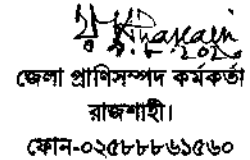 জেলা প্রাণিসম্পদ কর্মকর্তা
রাজশাহী।
ফোন-০২৫৮৮৮৬১৫৬০